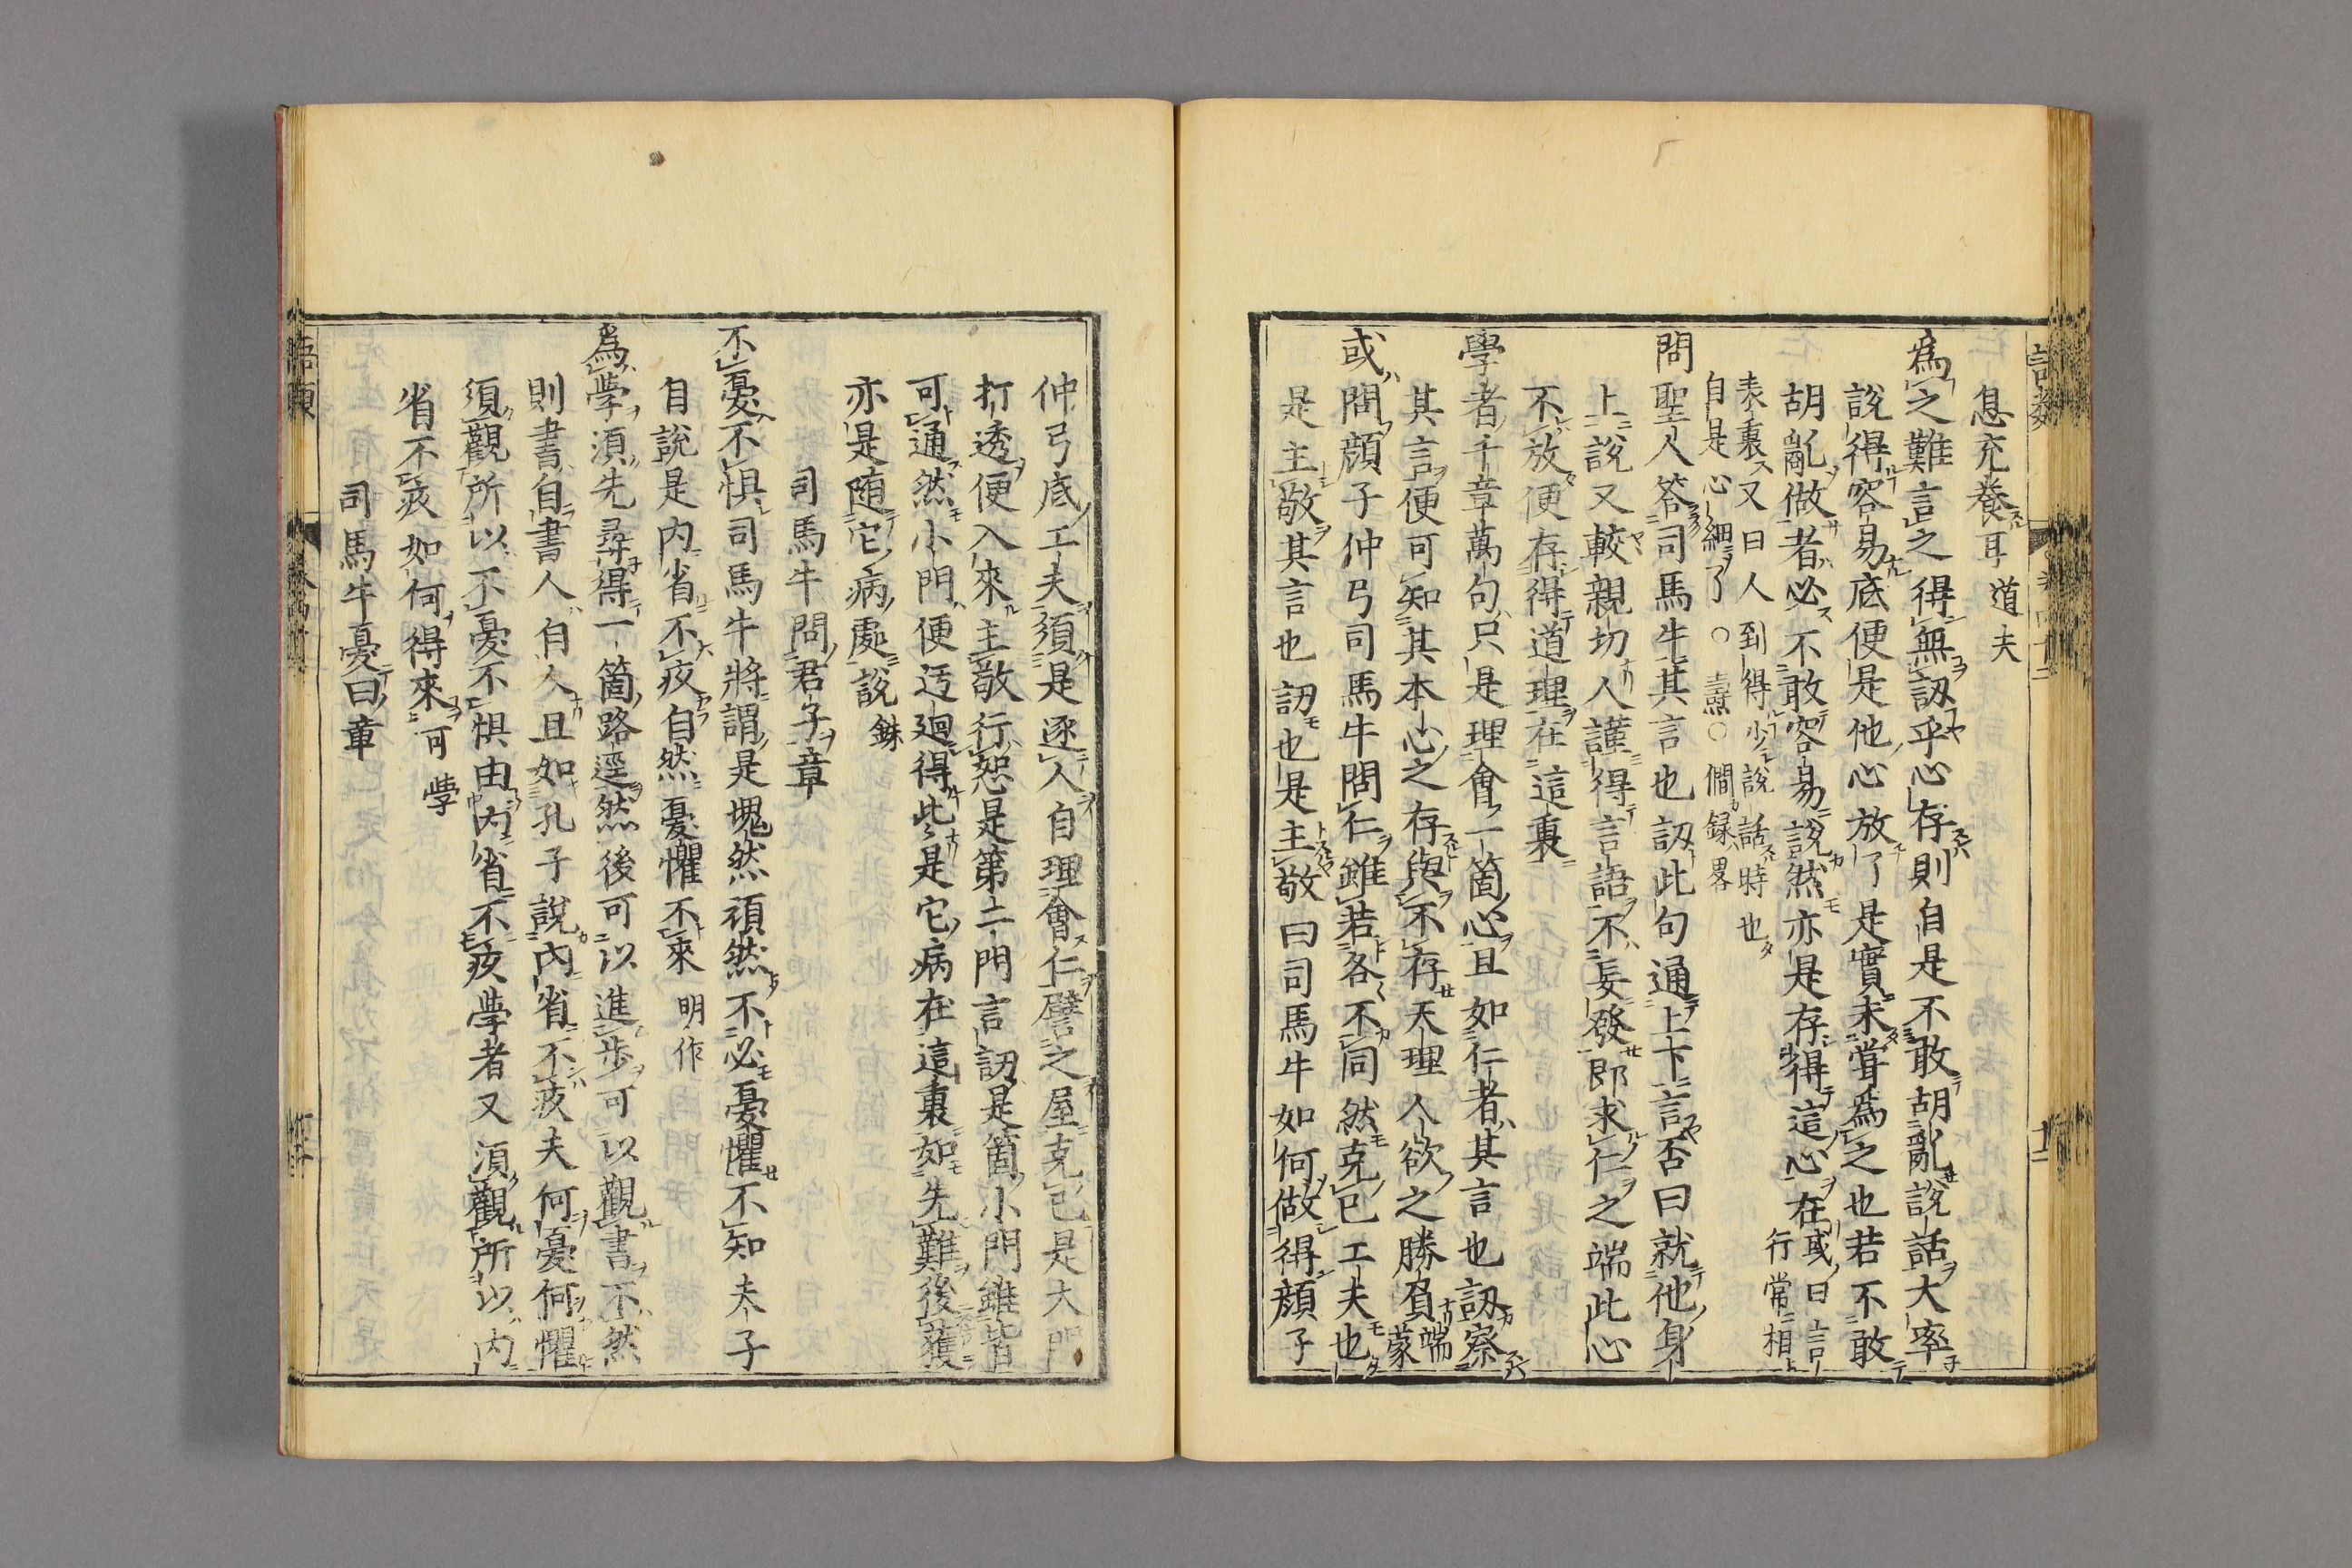 息充養耳 道夫
爲之難言之得無訒乎心存則自是不敢胡亂說話大率
說得容易底便是他心放了是實未嘗爲之也若不敢
胡亂做者必不敢容易說然亦是存得這心在 或曰言行常相
表裏又曰人到得少說話時也
自是心細了○燾○僩錄畧
問聖人答司馬牛其言也訒此句通上下言否曰就他身
上說又較親切人謹得言語不妄發卽求仁之端此心
不放便存得道理在這裏
學者千章萬句只是理會一箇心且如仁者其言也訒察
其言便可知其本心之存與不存天理人欲之勝負 端蒙
或問顔子仲弓司馬牛問仁雖若各不同然克己工夫也
是主敬其言也訒也是主敬曰司馬牛如何做得顔子
仲弓底工夫須是逐人自理會仁譬之屋克己是大門
打透便入來主敬行恕是第二門言訒是箇小門雖皆
可通然小門便迂迴得些是它病在這裏如先難後獲
亦是随它病處說 銖
司馬牛問君子章
不憂不惧司馬牛將謂是塊然頑然不必憂懼不知夫子
自說是内省不疚自然憂懼不來 明作
爲學須先尋得一箇路逕然後可以進步可以觀書不然
則書自書人自人且如孔子說内省不疚夫何憂何懼
須觀所以不憂不惧由内省不疚學者又須觀所以内
省不疚如何得來 可學
司馬牛憂曰章